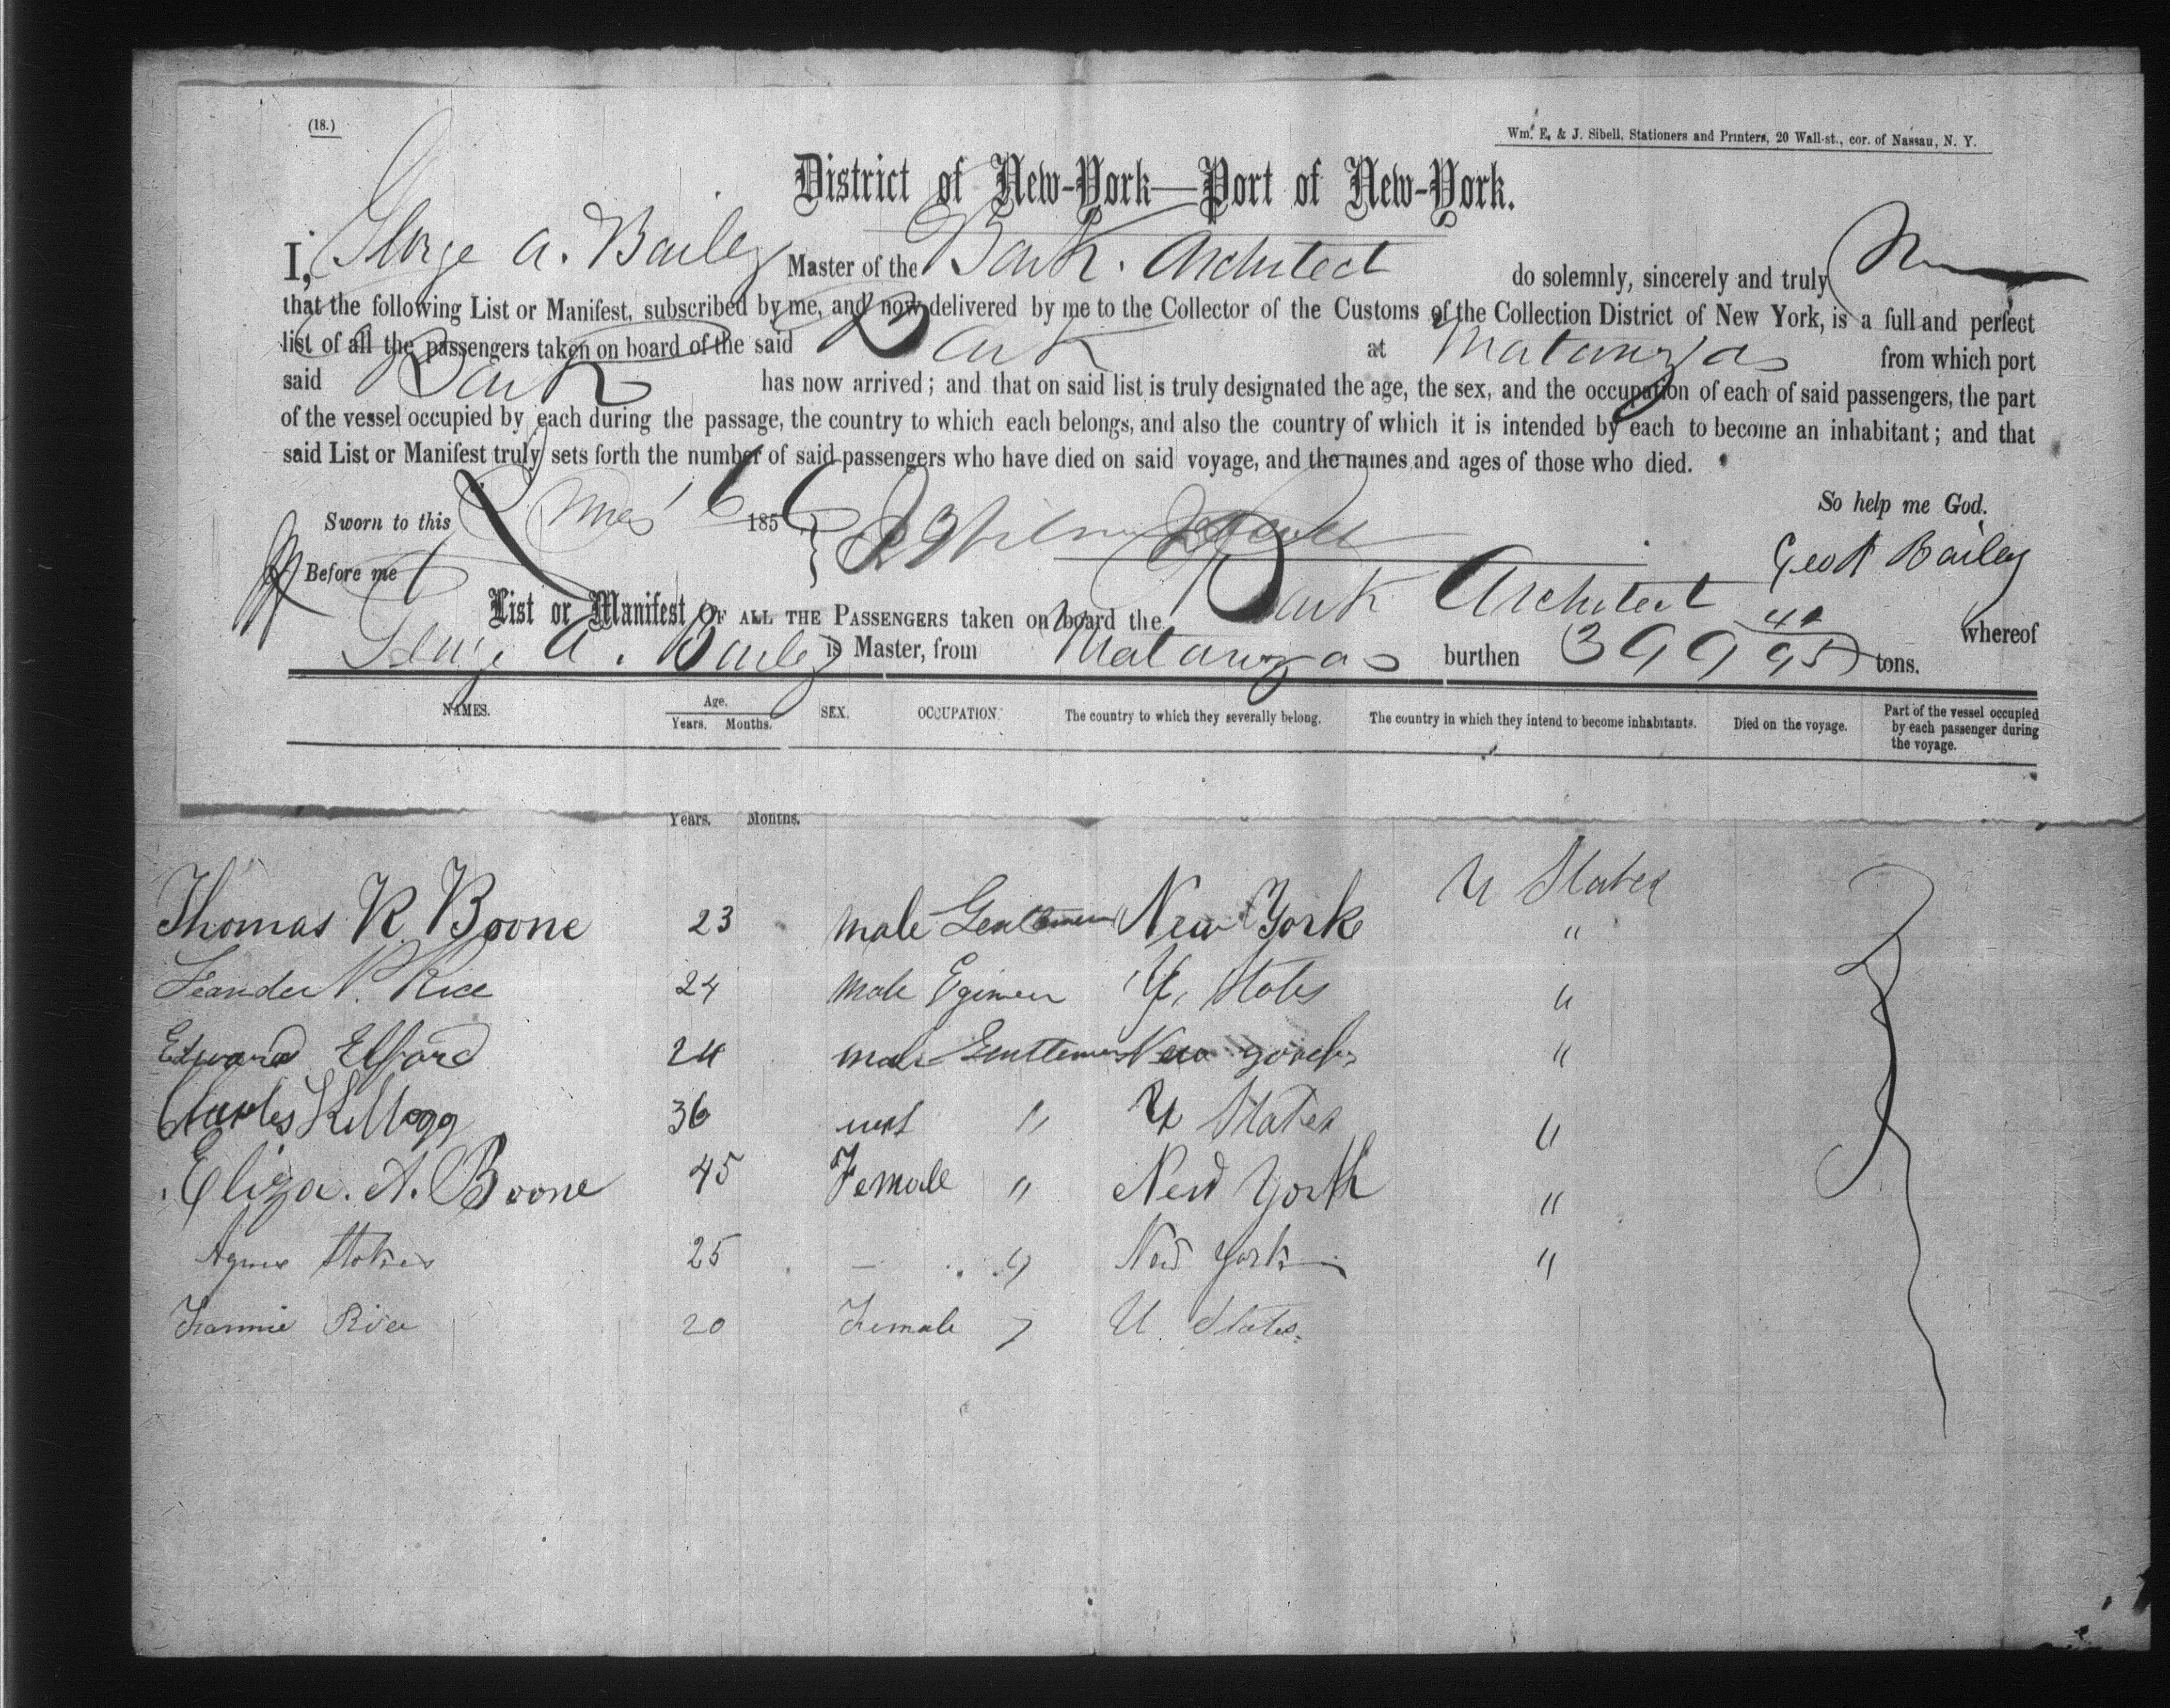 (18.)
Wm. E. & J. Sibell, Stationers and Printers, 20 Wall-st., cor. of Nassau, N. Y.
District of New-York—Port of New-York.
I, George A. Bailey Master of the Bark Architect do solemnly, sincerely and truly
that the following List or Manifest, subscribed by me, and now delivered by me to the Collector of the Customs of the Collection District of New York, is a full and perfect
list of all the passengers taken on board of the said Bark at Matanzas from which port
said Bark has now arrived; and that on said list is truly designated the age, the sex, and the occupation of each of said passengers, the part
of the vessel occupied by each during the passage, the country to which each belongs, and also the country of which it is intended by each to become an inhabitant; and that
said List or Manifest truly sets forth the number of said passengers who have died on said voyage, and the names and ages of those who died.
So help me God.
Sworn to this 16 185
Before me
Geo A Bailey
List or Manifest OF ALL THE PASSENGERS taken on board the Bark Architect whereof
George A. Bailey is Master, from Matanzas burthen 399 42/95 tons.
NAMES. Age. Years. Months. SEX. OCCUPATION. The country to which they severally belong. The country in which they intend to become inhabitants. Died on the voyage. Part of the vessel occupied by each passenger during the voyage.
Years. Months.
U States
Thomas R. Boone 23 male Gentleman New York "
Leander N. Rice 24 male Egineer U. States "
Edward Elford 24 male Gentleman New York "
Charles Kellogg 36 " U States "
Eliza. A. Boone 45 Female " New York "
Agnes Stokes 25 — " New York "
Fannie Rice 20 Female " U. States.